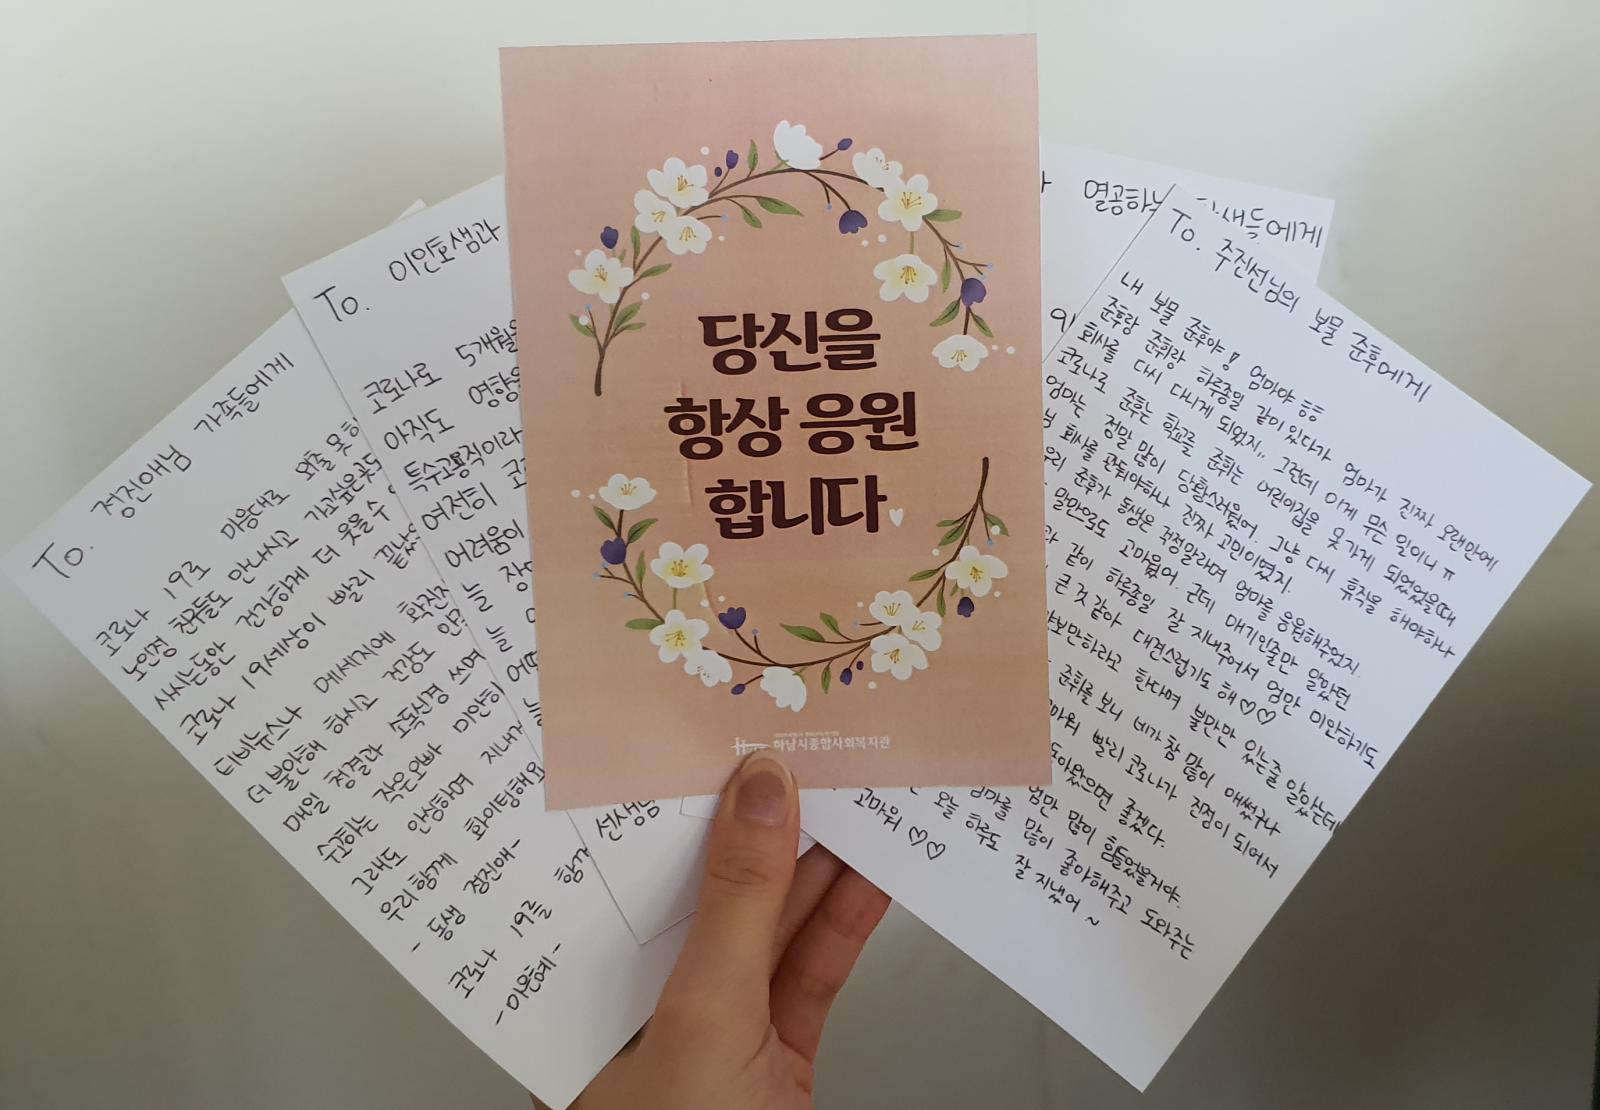 당신을
항상 응원
합니다
하남시종합사회복지관
To. 정진애님 가족들에게
코로나 19로 마음대로 외출 못하
노인정 친구들도 안나시고 가고싶은곳도
사시는동안 건강하게 더 웃을 수
코로나 19세상이 빨리 끝났
티비뉴스나 메세지에 확진자
더 불안해 하시고 건강도
매일 청결과 소독신경 쓰며
수고하는 작은오빠 미안하
그래도 안심하며 지내
우리 함께 화이팅해요
- 동생 정진애 -
코로나 19를 함께
To. 이안호샘과
코로나로 5개월
아직도 영향을
특수고용직이라
여전히 코
어려움이
늘 장
늘
어
늘
선생님
열공하는 학생들에게
To. 주진선님의 보물 준후에게
내 보물 준후야! 엄마야 ㅎㅎ
준후랑 준휘랑 하루종일 같이 있다가 엄마가 진짜 오랜만에
회사를 다시 다니게 되었지.. 그런데 이게 무슨 일이니 ㅠ
코로나로 준후는 학교를 준휘는 어린이집을 못가게 되었었을때
엄마는 정말 많이 당황스러웠어. 그냥 다시 휴직을 해야하나
회사를 관둬야하나 진짜 고민이였지.
우리 준후가 동생은 걱정말라며 엄마를 응원해주었지.
말만으로도 고마웠어. 근데 애기인줄만 알았던
같이 하루종일 잘 지내주어서 엄만 미안하기도
큰 것 같아 대견스럽기도 해♡♡
양보만하라고 한다며 불만만 있는줄 알았는데
준휘를 보니 네가 참 많이 애썼구나
고마워 빨리 코로나가 진정이 되어서
돌아왔으면 좋겠다.
엄만 많이 힘들었을거야.
엄마를 많이 좋아해주고 도와주는
오늘 하루도 잘 지냈어 ~
고마워 ♡♡